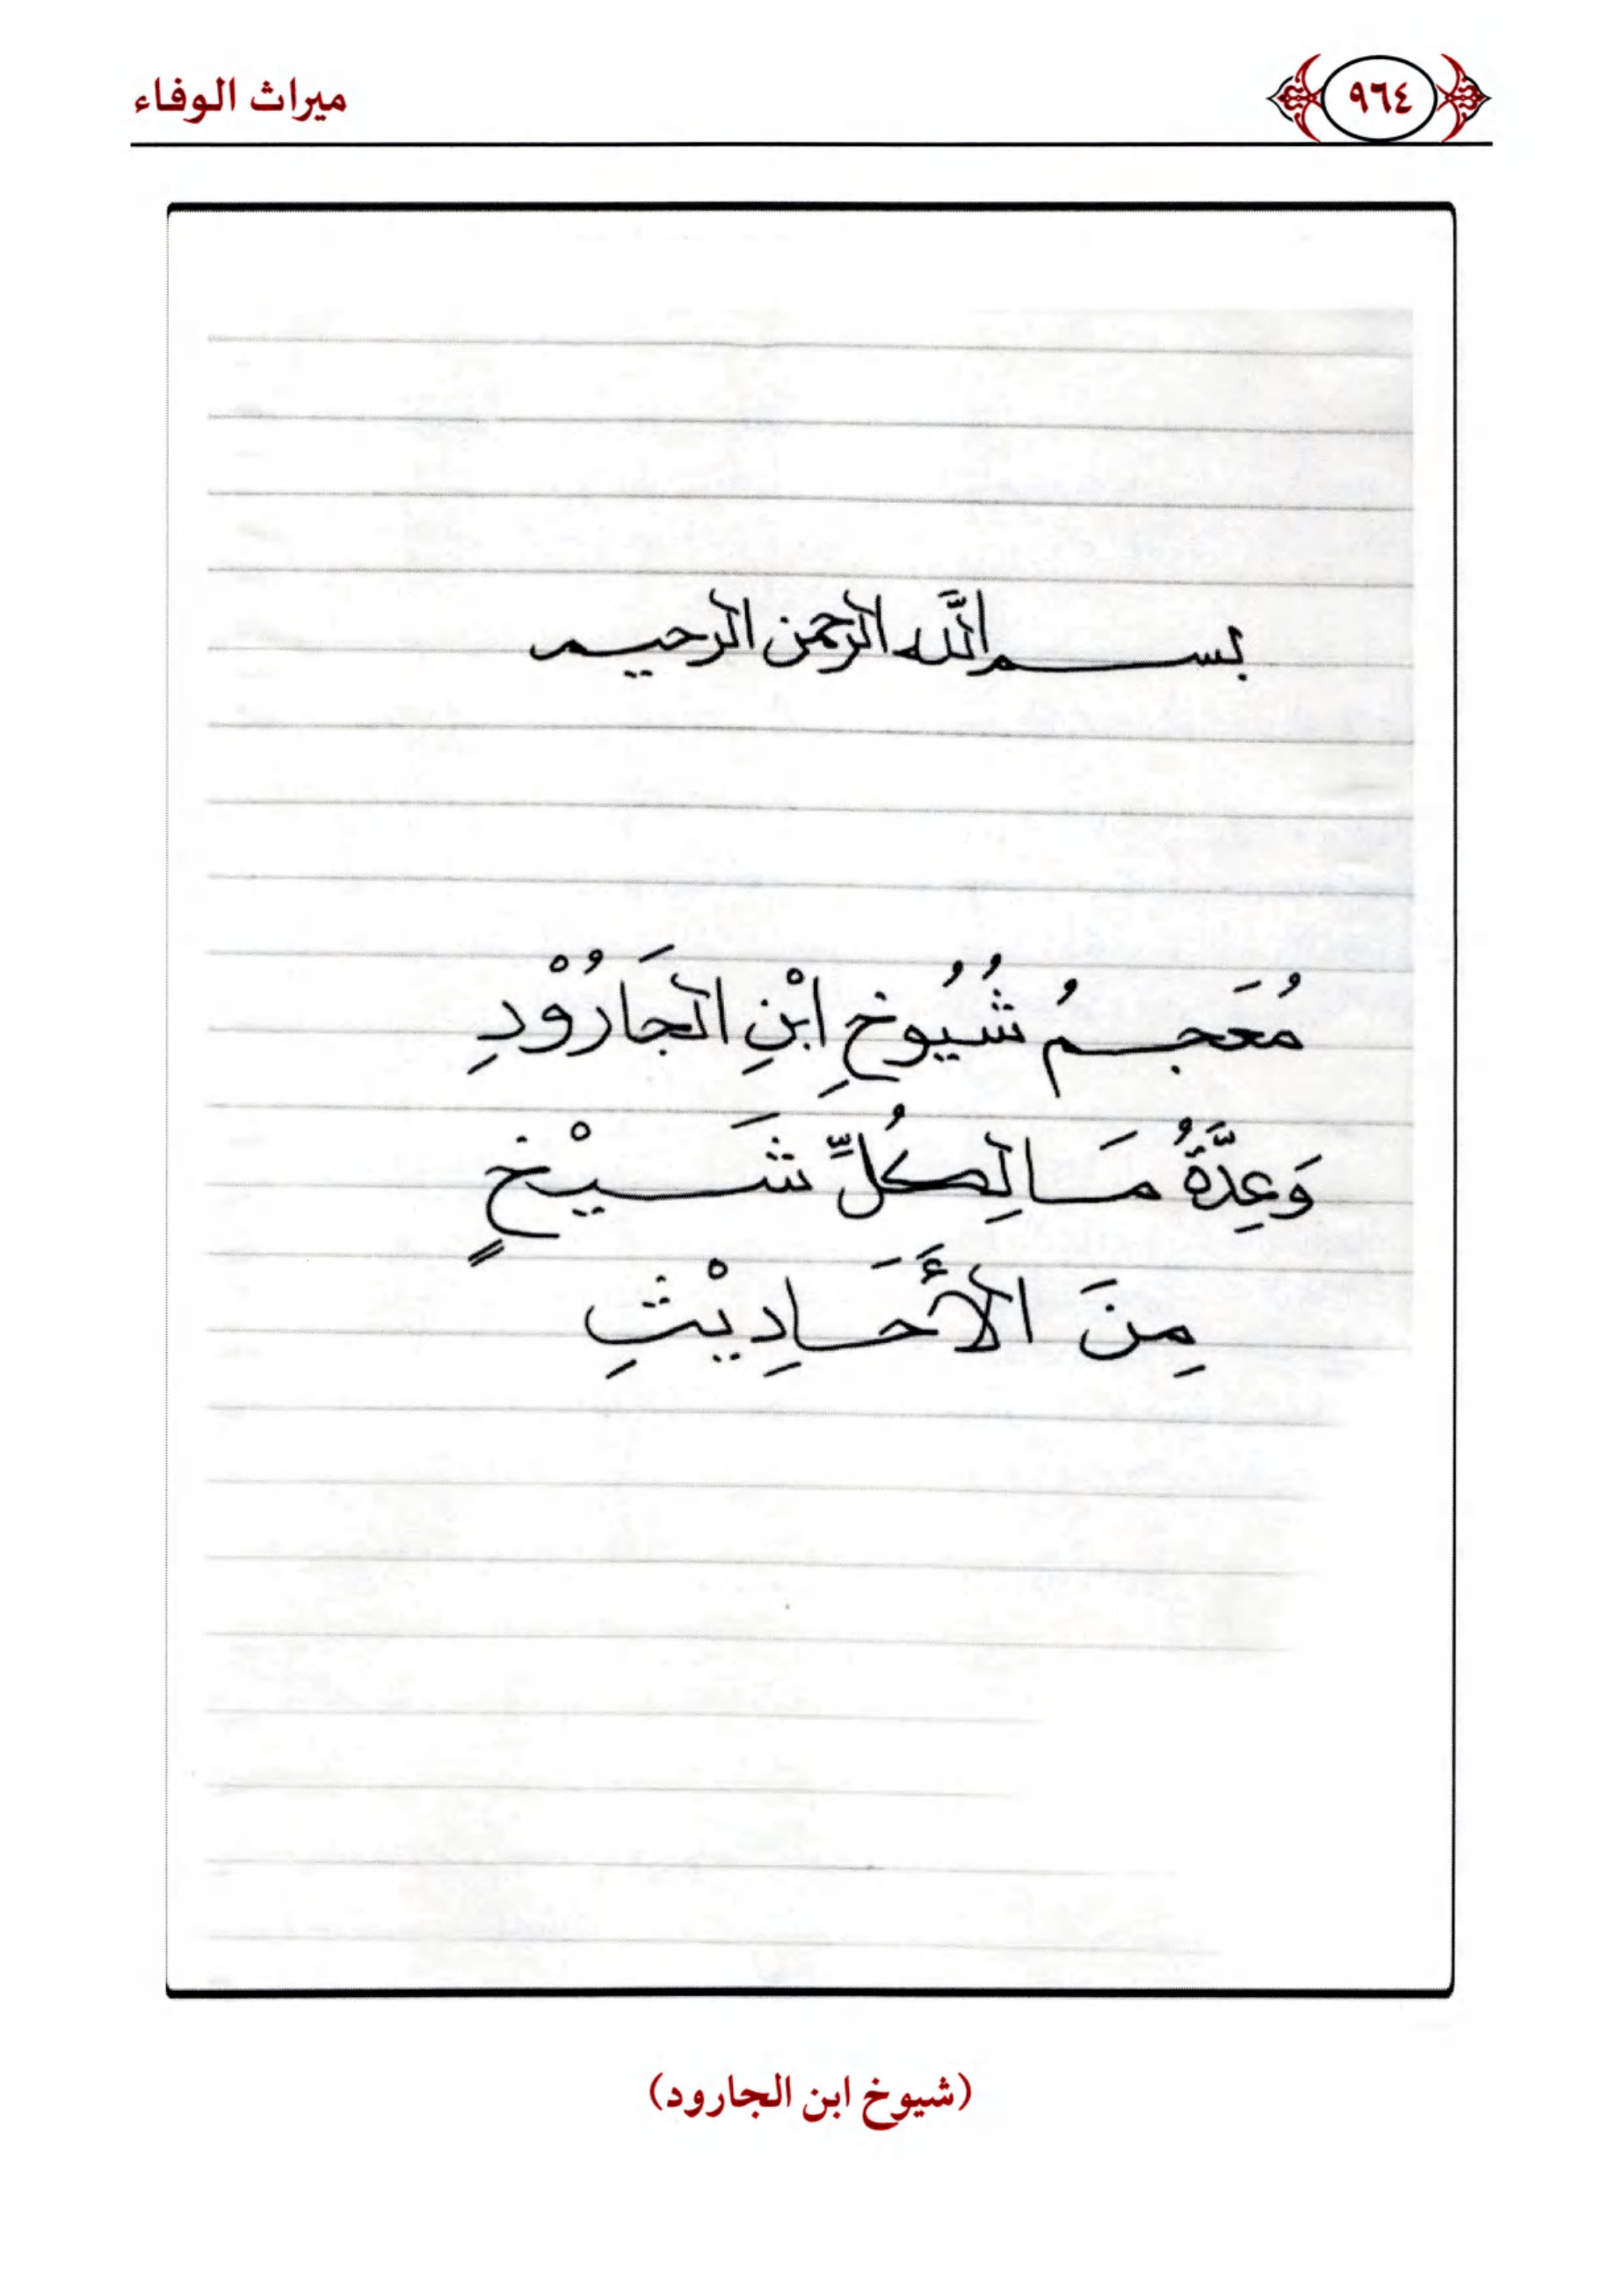 ٩٦٤
ميراث الوفاء
بسم اللَّه الرحمن الرحيم
مُعَجمُ شُيُوخِ ابْنِ الجَارُوْدِ
وَعِدَّةُ مَا لِكُلِّ شَيْخٍ
مِنَ الأَحَادِيْثِ
(شيوخ ابن الجارود)